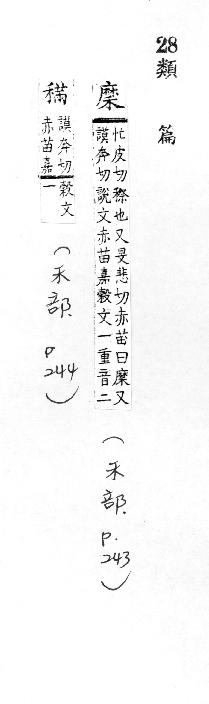 28類 篇
穈
忙皮切穄也又旻悲切赤苗曰穈又
謨奔切說文赤苗嘉穀文一重音二
(禾部 p.243)
謨奔切
赤苗嘉
穀文
一
(禾部 p244)